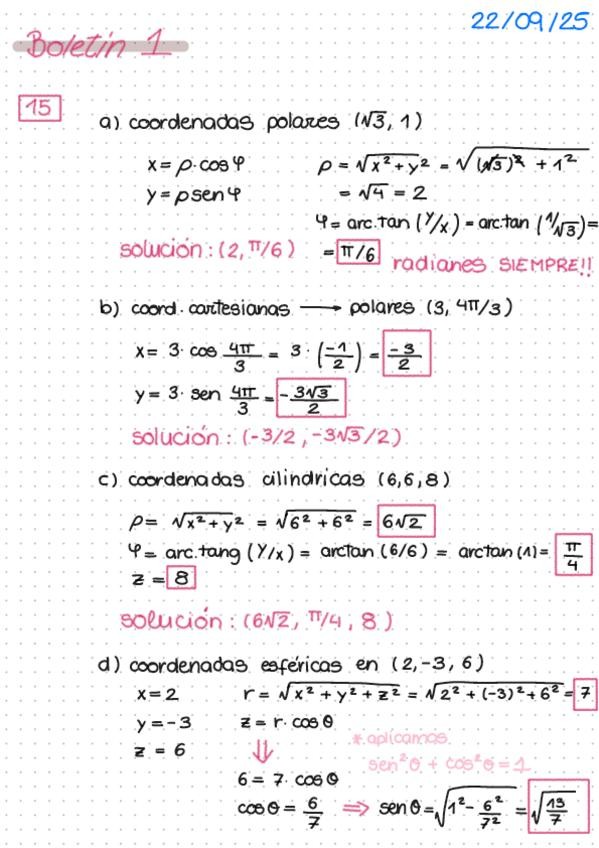 22/09/25
Boletín 1
15
a) coordenadas polares (√3, 1)
x = ρ·cos φ    ρ = √x² + y² = √(√3)² + 1²
y = ρ sen φ    = √4 = 2
φ = arc.tan (y/x) = arc.tan (1/√3) =
solución: (2, π/6)    = π/6    radianes SIEMPRE!!
b) coord. cartesianas ⟶ polares (3, 4π/3)
x = 3· cos 4π/3 = 3 · (-1/2) = -3/2
y = 3· sen 4π/3 = -3√3/2
solución: (-3/2, -3√3/2)
c) coordenadas cilíndricas (6,6,8)
ρ = √x² + y² = √6² + 6² = 6√2
φ = arc.tang (y/x) = arctan (6/6) = arctan (1) = π/4
z = 8
solución: (6√2, π/4, 8)
d) coordenadas esféricas en (2,-3, 6)
x = 2    r = √x² + y² + z² = √2² + (-3)² + 6² = 7
y = -3    z = r. cos θ
z = 6    ⇓    * aplicamos
sen²θ + cos²θ = 1
6 = 7. cos θ
cos θ = 6/7 ⇒ sen θ = √1² - 6²/7² = √13/7